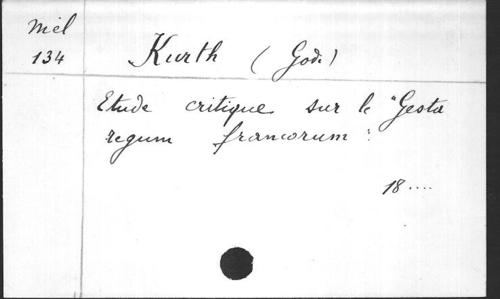 Mel
134
Kurth (God.)
Etude critique sur le "Gesta
regum francorum".
18....